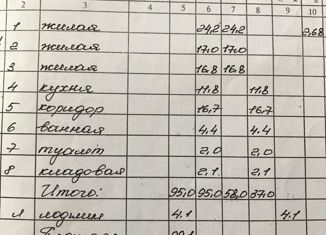 2 3 5 6 7 8 9 10
1 жилая 24,2 24,2 2,68
2 жилая 17,0 17,0
3 жилая 16,8 16,8
4 кухня 11,8 11,8
5 коридор 16,7 16,7
6 ванная 4,4 4,4
7 туалет 2,0 2,0
8 кладовая 2,1 2,1
Итого: 95,0 95,0 58,0 37,0
л лоджия 4.1 4.1